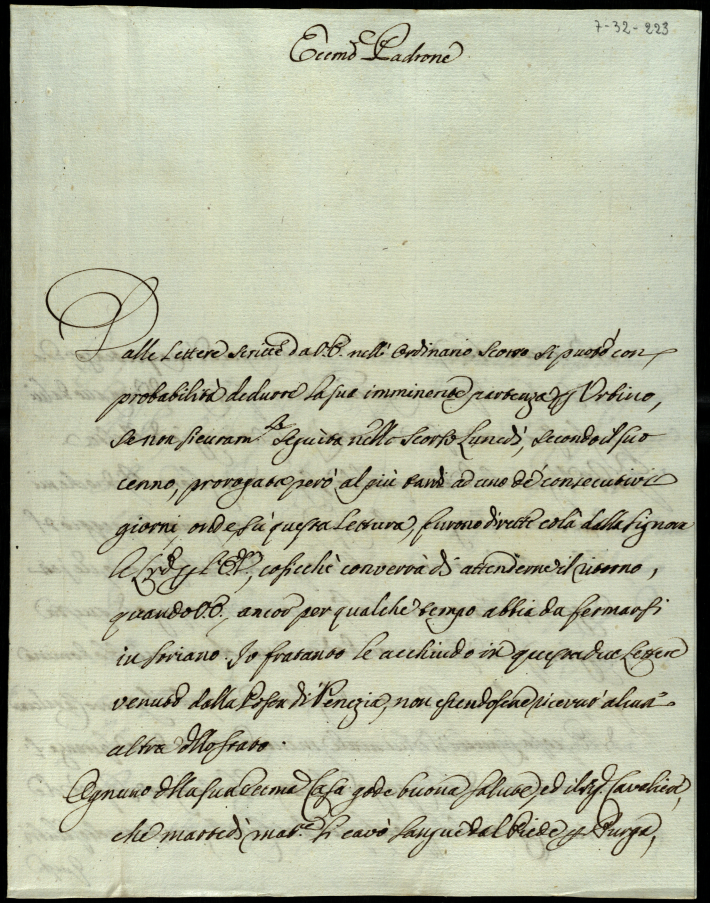 7-32-223
Eccmo Padrone
Dalle Lettere scritte da V.E. nell' ordinario scorso si puote con
probabilità dedurre la sua imminente partenza p Urbino,
se non sicuram.te seguita nello scorso Lunedì, secondo il suo
cenno, prorogata però al più tardi ad uno de' consecutivi
giorni, onde su questa Lettura, furono dirette colà dalla Signora
le p l'E.V., cosicchè converrà di attenderne il ritorno,
quando V.E., ancor per qualche tempo abbia da fermarsi
in Soriano. Io fratanto le acchiudo in questa due Lettere
venute dalla Posta di Venezia, non essendosene ricevut' alcun'
altra dllo stato.
Ognuno dlla sua Eccma Casa gode buona salute, ed il Sig. Cavalier,
che martedì mat. si cavò sangue dal Piede p Purga,